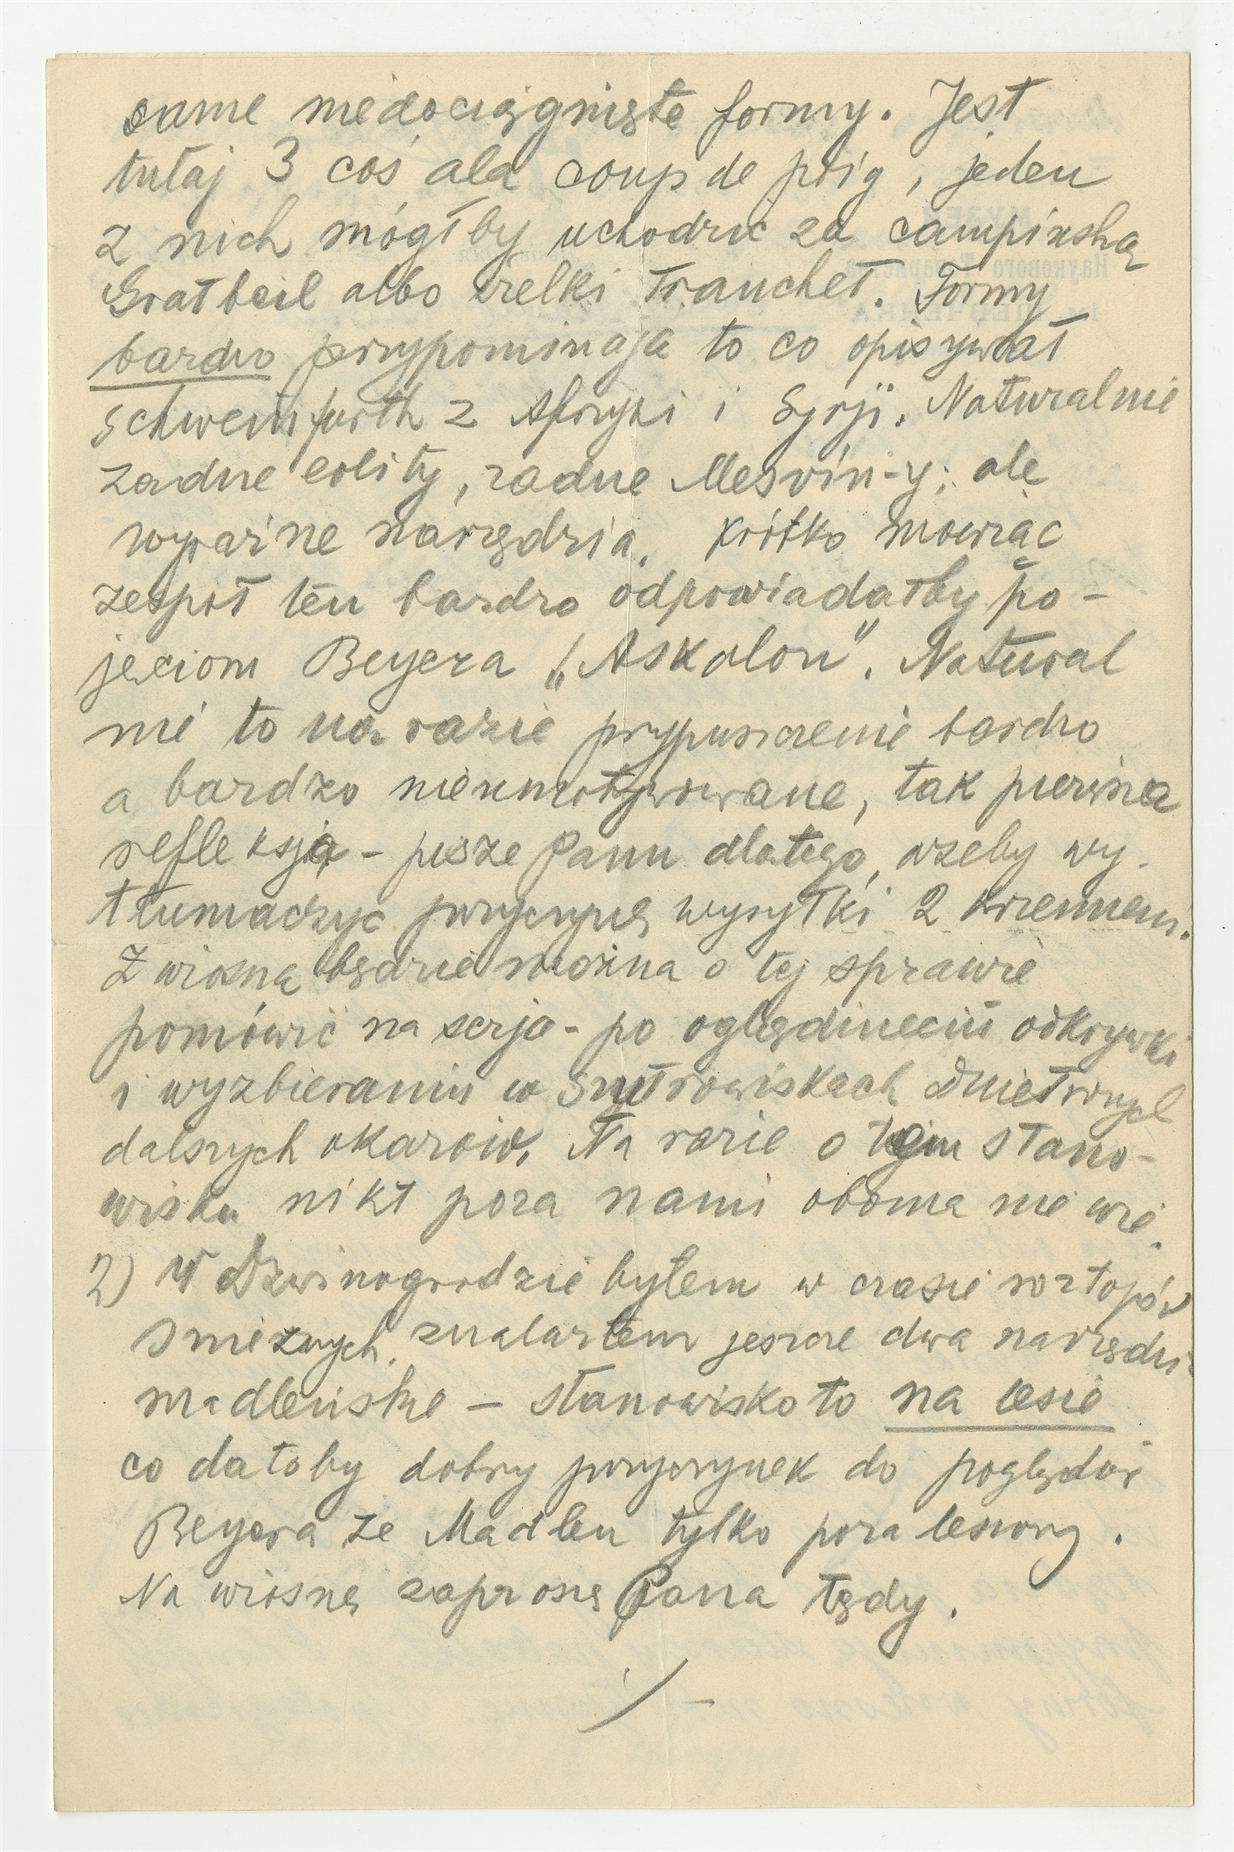 same niedociągnięte formy. Jest
tutaj 3 coś ala coup de poig, jeden
z nich mógłby uchodzić za campińską
Gratbeil albo wielki Tranchet. Formy
bardzo przypominają to co opisywał
Schweinfurth z Afryki i Syrji. Naturalnie
żadne eolity, żadne Mesvin-y; ale
wyraźne narzędzia. Krótko mówiąc
zespół ten bardzo odpowiadałby po-
jęciom Beyera „Askalon". Natural
nie to na razie przypuszczenie bardzo
a bardzo nieumotywowane, tak pierwsza
refleksja - piszę Panu dlatego, ażeby wy-
tłumaczyć przyczynę wysyłki 2 krzemieni.
Z wiosną będzie można o tej sprawie
pomówić na serjo - po oglądnięciu odkrywki
i wyzbieraniu w szutrowiskach
dalszych okazów. Na razie o tym stano-
wisku nikt poza nami oboma nie wie.
2) W Dzwinogrodzie byłem w czasie roztopów
śnieżnych, znalazłem jeszcze dwa narzędzia
madleńskie — stanowisko to na lesie
co dałoby dobry przyczynek do poglądów
Beyera że Madlen tylko poza lessowy.
Na wiosnę zaproszę Pana tędy.